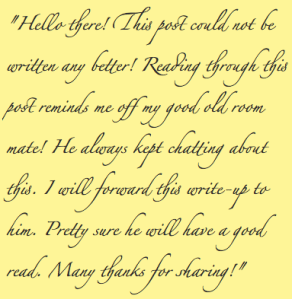 "Hello there! This post could not be
written any better! Reading through this
post reminds me off my good old room
mate! He always kept chatting about
this. I will forward this write-up to
him. Pretty sure he will have a good
read. Many thanks for sharing!"